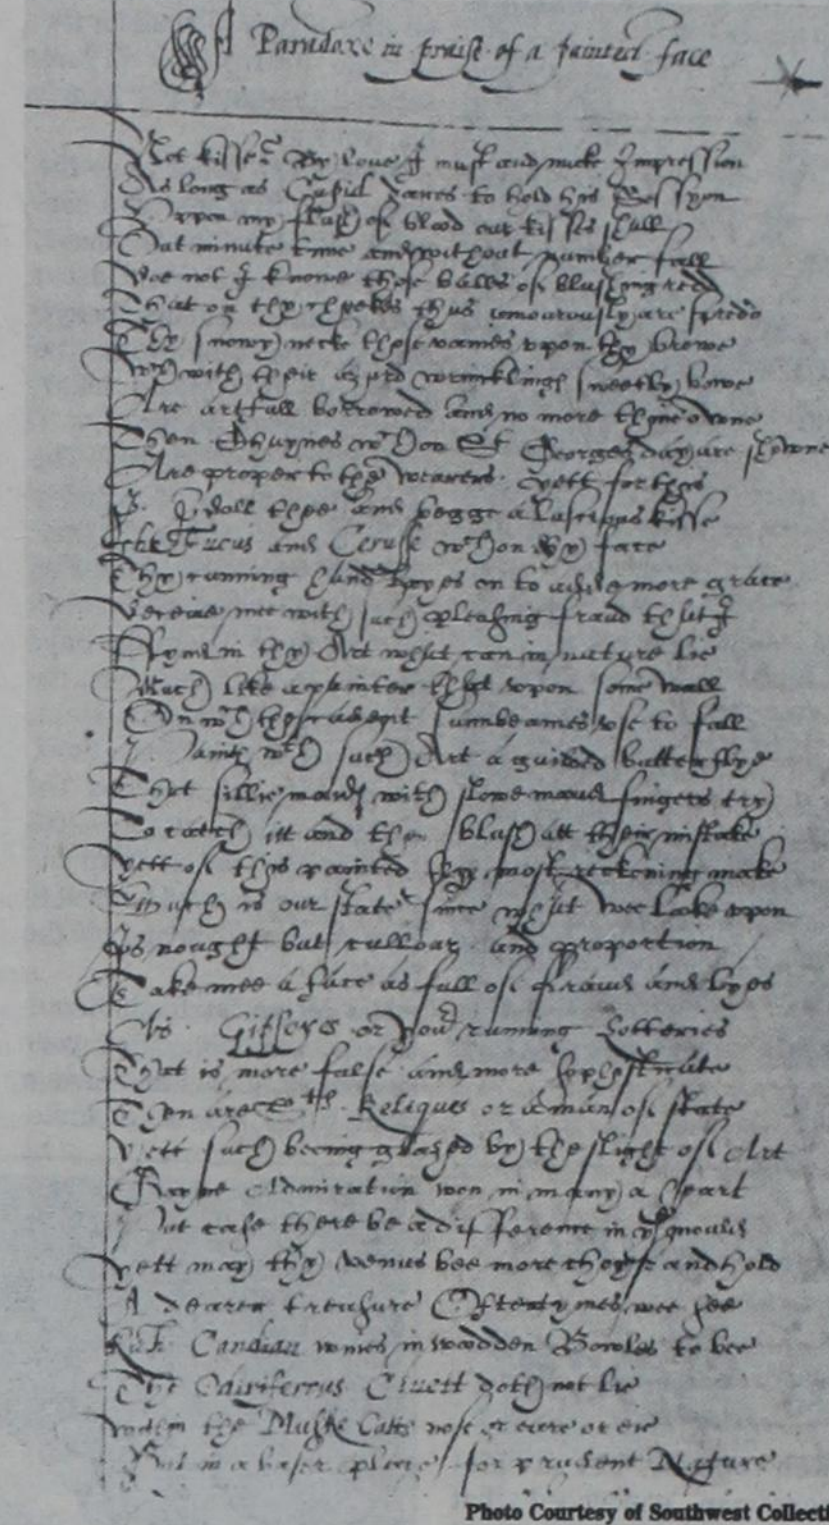 A Paradoxe in praise of a painted face
Not kisse? By Jove I must and make Impression
As long as Cupid dares to hold his Sessyon
Uppon my flesh of blood our kisses shall
Out minute time and without number fall
Doe not I knowe those balls of blushing red
That on thy cheekes thus amourously are spredd
Thy snowy necke those vaines upon thy browe
Wch with their azurd wrincklings sweetly bowe
Are artfull borrowed and no more thyne owne
Then Chaynes wch on St Georges day are showne
Are proper to the wearers yett for this
I Idoll thee and begge a luscious kisse
the Fucus and Ceruse wch on thy face
Thy cunning hand layes on to add more grace
Deceive mee with such pleasing fraud that I
Fynd in thy Art what can in nature lie
Much like a painter that upon some wall
On wch the radient sunnbeames use to fall
Paints wth such Art a guilded butterflye
That sillie maids with slowe movd fingers try
To catch itt and then blush att their mistake
yett of this painted flye most reckoning make
Such is our state since what wee looke upon
Is nought but cullour and proportion
Take mee a face as full of fraud and lyes
As Gipseyes or your cunning Lotteries
That is more false and more sophisticate
Then are Reliques or a man of state
yett such beeing glazed by the slight of Art
Gayne Admiration won in many a Heart
Put case there be a difference in the mould
yett may thy Venus bee more choyse and hold
A dearer treasure Oftentymes wee see
Rich Candian wines in wodden Bowles to bee
The Odoriferous Civett doth not lie
within the Muske Catts nose or eare or eie
But in a baser place for prudent Nature
Photo Courtesy of Southwest Collecti